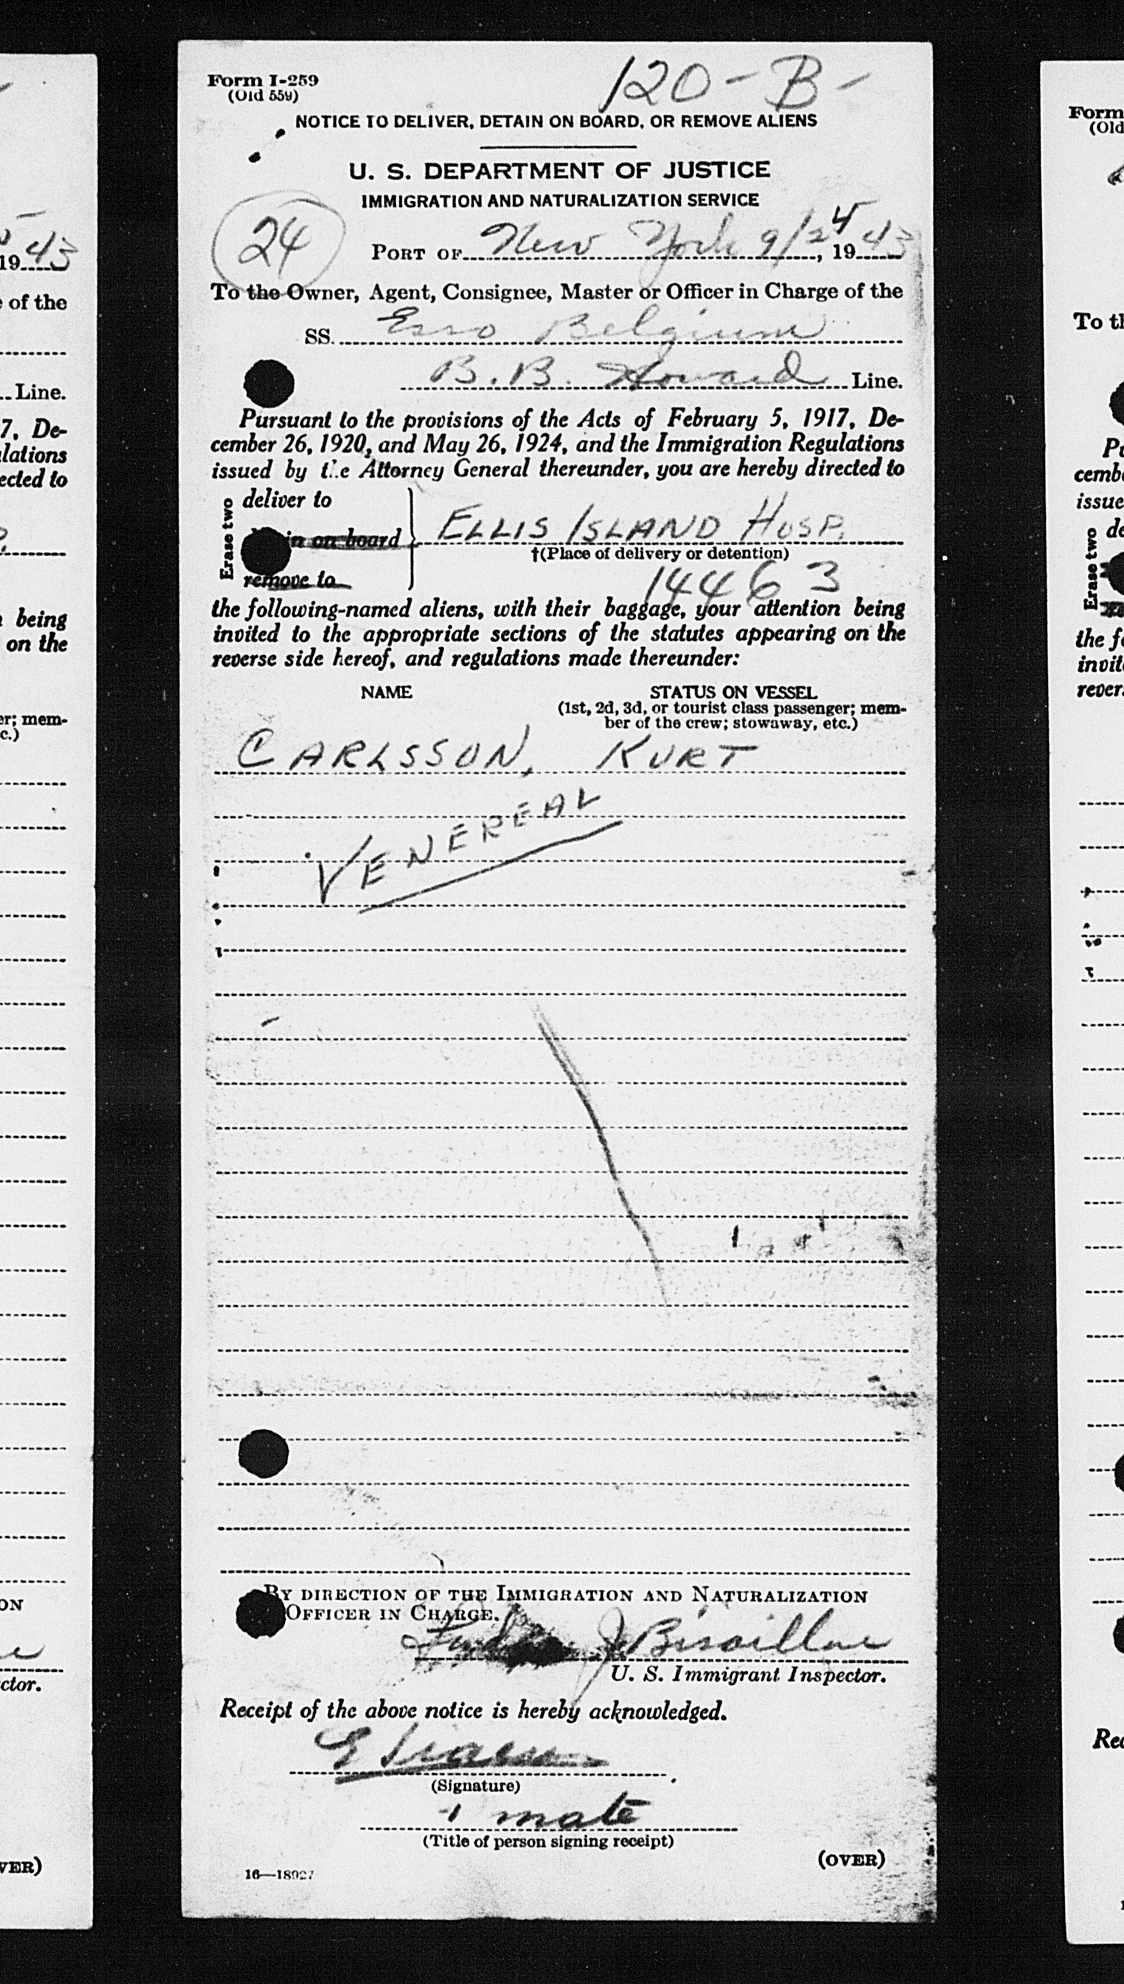 Form I-259
(Old 559)
120-B-
NOTICE TO DELIVER, DETAIN ON BOARD, OR REMOVE ALIENS
U. S. DEPARTMENT OF JUSTICE
IMMIGRATION AND NATURALIZATION SERVICE
24
PORT OF New York 9/24, 1943
To the Owner, Agent, Consignee, Master or Officer in Charge of the
SS. Esso Belgium
B. B. Howard Line.
Pursuant to the provisions of the Acts of February 5, 1917, De-
cember 26, 1920, and May 26, 1924, and the Immigration Regulations
issued by the Attorney General thereunder, you are hereby directed to
Erase two
deliver to
in on board
remove to
ELLIS ISLAND HOSP.
†(Place of delivery or detention)
14463
the following-named aliens, with their baggage, your attention being
invited to the appropriate sections of the statutes appearing on the
reverse side hereof, and regulations made thereunder:
NAME
STATUS ON VESSEL
(1st, 2d, 3d, or tourist class passenger; mem-
ber of the crew; stowaway, etc.)
CARLSSON, KURT
VENEREAL
BY DIRECTION OF THE IMMIGRATION AND NATURALIZATION
OFFICER IN CHARGE.
J Bisaillon
U. S. Immigrant Inspector.
Receipt of the above notice is hereby acknowledged.
(Signature)
1 mate
(Title of person signing receipt)
(OVER)
16—18927
1943
of the
Line.
7, De-
lations
ected to
being
on the
er; mem-
c.)
ON
ctor.
VER)
Form
(Old
To th
Erase two
cembe
issue
de
the fo
invite
rever
Rec